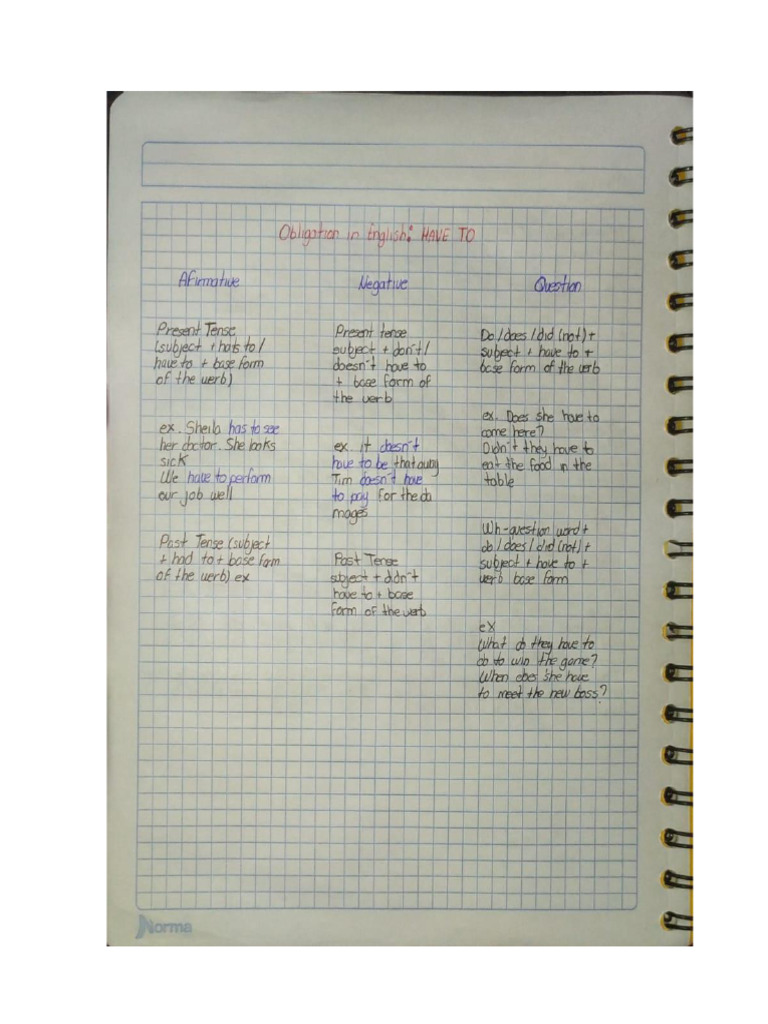 Obligation in English: HAVE TO
Afirmative
Negative
Question
Present Tense
(subject + hats to /
have to + base form
of the verb)
ex. Sheila has to see
her doctor. She looks
sick
We have to perform
our job well
Past Tense (subject
+ had to + base form
of the verb) ex
Present tense
subject + don't /
doesn't have to
+ base form of
the verb
ex. it doesn't
have to be that
Tim doesn't have
to pay for the da
mages
Past Tense
sbject + didn't
have to + base
form of the verb
Do / does / did (not) +
subject + have to +
base form of the verb
ex. Does she have to
come here?
Didn't they have to
eat the food in the
table
Wh-question word +
do / does / did (not) +
subject + have to +
verb base form
ex
What do they have to
do to win the game?
When does she have
to meet the new boss?
Norma